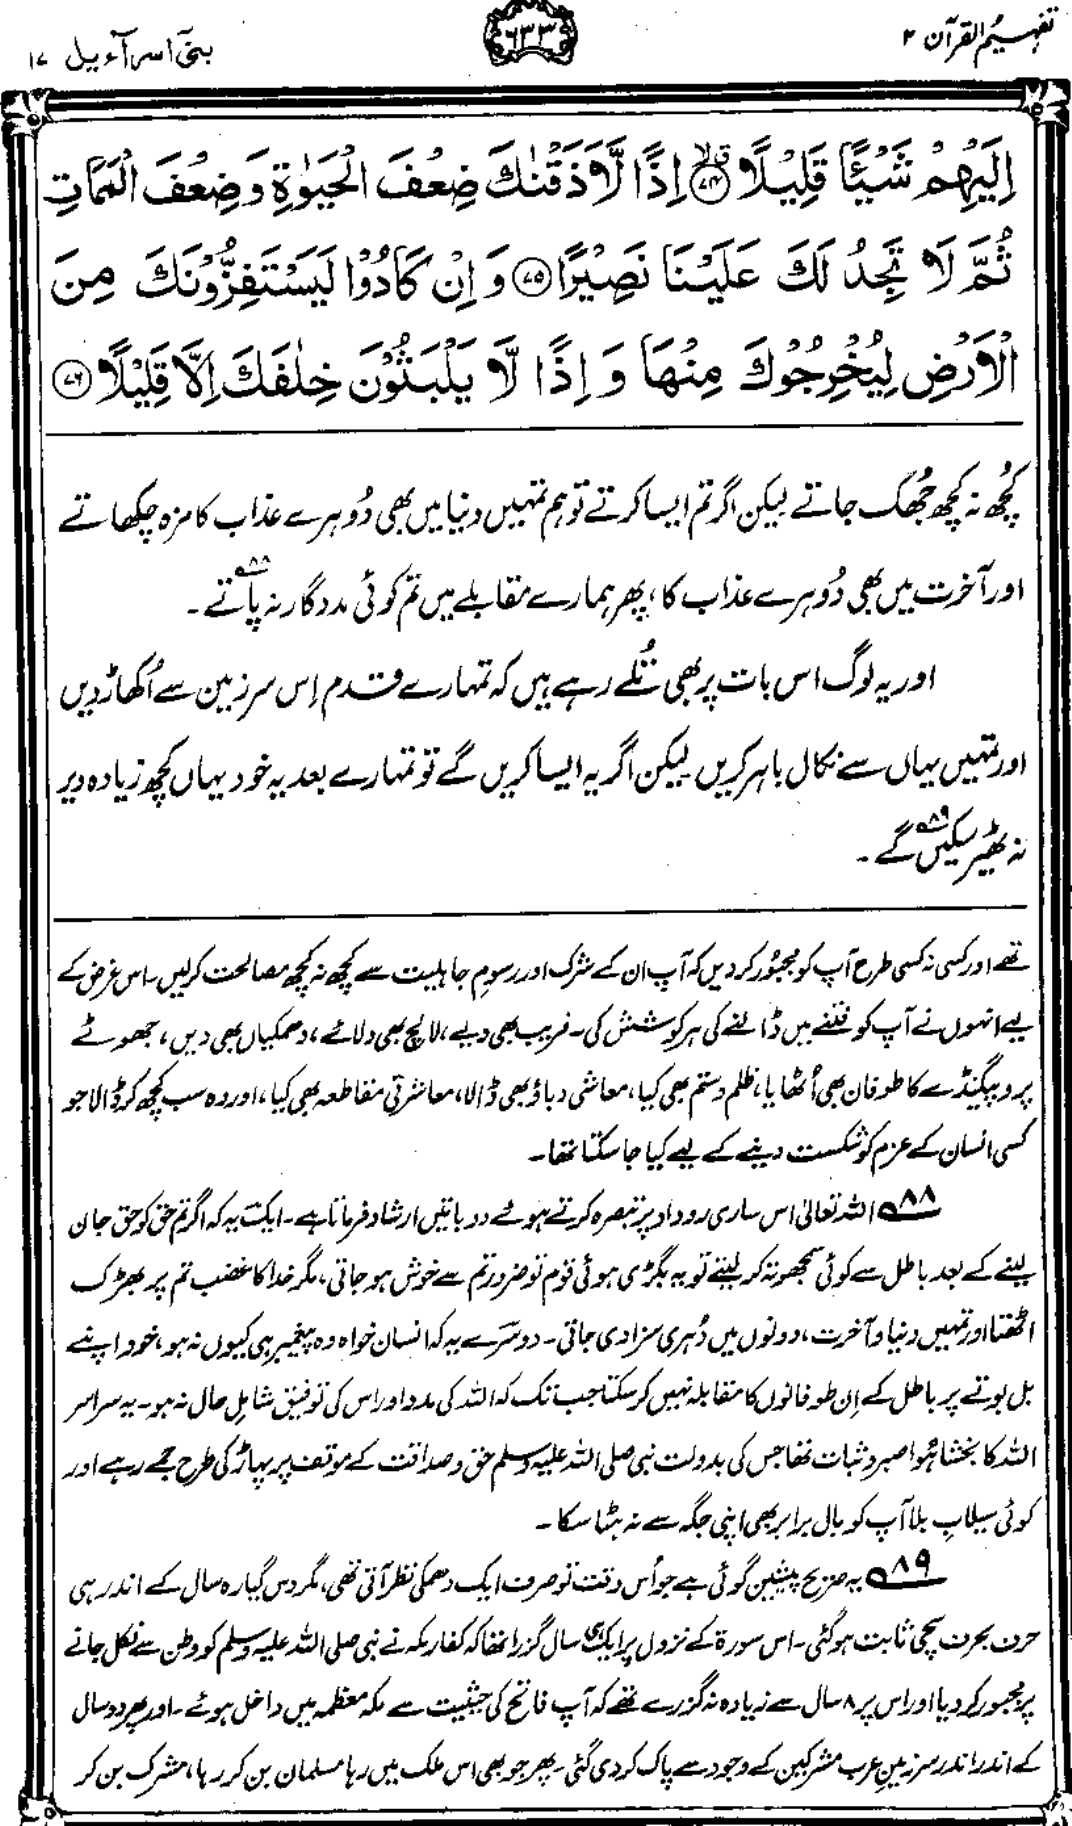 تفہیم القرآن ۲
۶۳۳
بنیٓ اسرآءیل ۱۷
اِلَيْهِمْ شَيْـًٔا قَلِيْلًا ﴿۷۴﴾ اِذًا لَّاَذَقْنٰكَ ضِعْفَ الْحَيٰوةِ وَ ضِعْفَ الْمَمَاتِ
ثُمَّ لَا تَجِدُ لَكَ عَلَيْنَا نَصِيْرًا ﴿۷۵﴾ وَ اِنْ كَادُوْا لَيَسْتَفِزُّوْنَكَ مِنَ
الْاَرْضِ لِيُخْرِجُوْكَ مِنْهَا وَ اِذًا لَّا يَلْبَثُوْنَ خِلٰفَكَ اِلَّا قَلِيْلًا ﴿۷۶﴾
کچھ نہ کچھ جھک جاتے لیکن اگر تم ایسا کرتے تو ہم تمہیں دنیا میں بھی دُوہرے عذاب کا مزہ چکھاتے
اور آخرت میں بھی دُوہرے عذاب کا، پھر ہمارے مقابلے میں تم کوئی مددگار نہ پاتے۸۸۔
اور یہ لوگ اس بات پر بھی تُلے رہے ہیں کہ تمہارے قدم اِس سرزمین سے اُکھاڑ دیں
اور تمہیں یہاں سے نکال باہر کریں لیکن اگر یہ ایسا کریں گے تو تمہارے بعد یہ خود یہاں کچھ زیادہ دیر
نہ ٹھیر سکیں گے۸۹۔
تھے اور کسی نہ کسی طرح آپ کو مجبُور کر دیں کہ آپ ان کے شرک اور رسومِ جاہلیت سے کچھ نہ کچھ مصالحت کرلیں۔ اس غرض کے
لیے انہوں نے آپ کو فتنے میں ڈالنے کی ہر کوشش کی۔ فریب بھی دیے، لالچ بھی دلائے، دھمکیاں بھی دیں، جھوٹے
پروپیگنڈے کا طوفان بھی اُٹھایا، ظلم و ستم بھی کیا، معاشی دباؤ بھی ڈالا، معاشرتی مقاطعہ بھی کیا، اور وہ سب کچھ کر ڈالا جو
کسی انسان کے عزم کو شکست دینے کے لیے کیا جا سکتا تھا۔
۸۸ اللہ تعالیٰ اس ساری روداد پر تبصرہ کرتے ہوئے دو باتیں ارشاد فرماتا ہے۔ ایک یہ کہ اگر تم حق کو حق جان
لینے کے بعد باطل سے کوئی سمجھوتہ کر لیتے تو یہ بگڑی ہوئی قوم تو ضرور تم سے خوش ہو جاتی، مگر خدا کا غضب تم پر بھڑک
اٹھتا اور تمہیں دنیا و آخرت، دونوں میں دُہری سزا دی جاتی۔ دوسرے یہ کہ انسان خواہ وہ پیغمبر ہی کیوں نہ ہو، خود اپنے
بل بوتے پر باطل کے اِن طوفانوں کا مقابلہ نہیں کر سکتا جب تک کہ اللہ کی مدد اور اس کی توفیق شاملِ حال نہ ہو۔ یہ سراسر
اللہ کا بخشا ہُوا صبر و ثبات تھا جس کی بدولت نبی صلی اللہ علیہ وسلم حق و صداقت کے موقف پر پہاڑ کی طرح جمے رہے اور
کوئی سیلابِ بلا آپ کو بال برابر بھی اپنی جگہ سے نہ ہٹا سکا۔
۸۹ یہ صریح پیشین گوئی ہے جو اُس وقت تو صرف ایک دھمکی نظر آتی تھی، مگر دس گیارہ سال کے اندر ہی
حرف بحرف سچی ثابت ہو گئی۔ اس سورۃ کے نزول پر ایک ہی سال گزرا تھا کہ کفارِ مکہ نے نبی صلی اللہ علیہ وسلم کو وطن سے نکل جانے
پر مجبور کر دیا اور اس پر ۸ سال سے زیادہ نہ گزرے تھے کہ آپ فاتح کی حیثیت سے مکہ معظمہ میں داخل ہوئے۔ اور پھر دو سال
کے اندر اندر سرزمینِ عرب مشرکین کے وجود سے پاک کر دی گئی۔ پھر جو بھی اس ملک میں رہا مسلمان بن کر رہا، مشرک بن کر